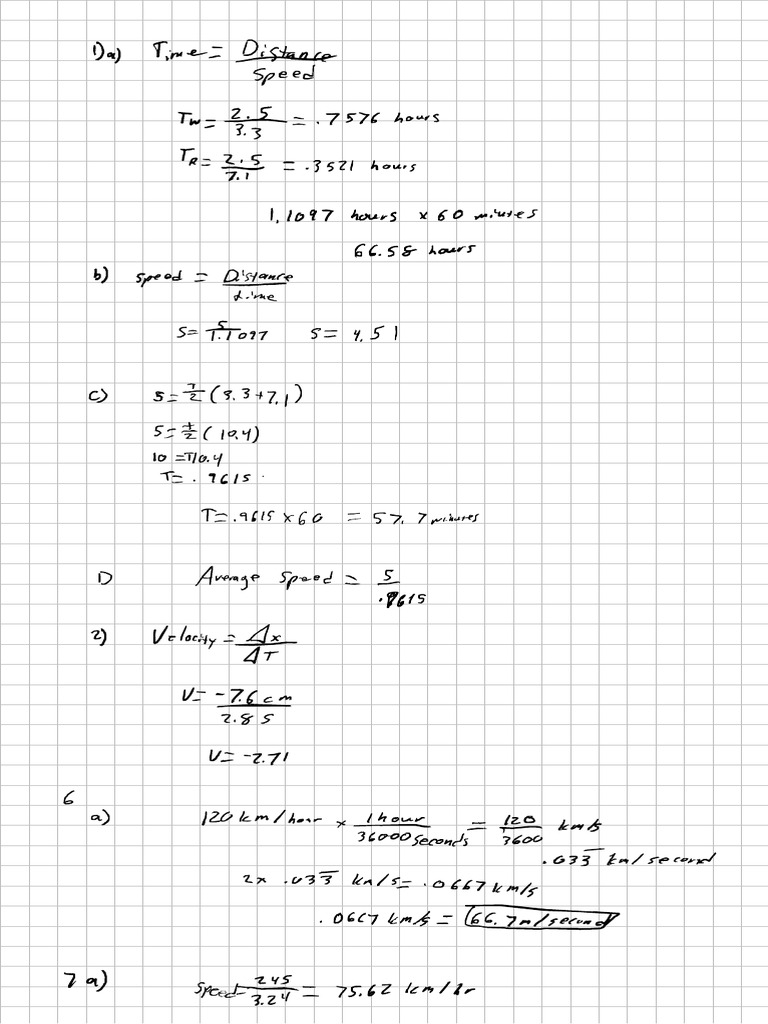 1)a) Time = Distance / Speed
Tw = 2.5 / 3.3 = .7576 hours
TR = 2.5 / 7.1 = .3521 hours
1.1097 hours × 60 minutes
66.58 hours
b) speed = Distance / time
S = 5 / 1.1097 S = 4.51
c) S = T/2 (3.3+7.1)
S = T/2 (10.4)
10 = T10.4
T = .9615
T = .9615 × 60 = 57.7 minutes
D Average speed = 5 / .9615
2) Velocity = Δx / ΔT
V = -7.6 cm / 2.8 S
V = -2.71
6
a) 120 km/hour × 1 hour / 36000 seconds = 120 / 3600 km/s
.033̅ km/second
2× .033̅ km/s = .0667 km/s
.0667 km/s = 66.7 m/second
7 a) Speed = 245 / 3.24 = 75.62 km/hr